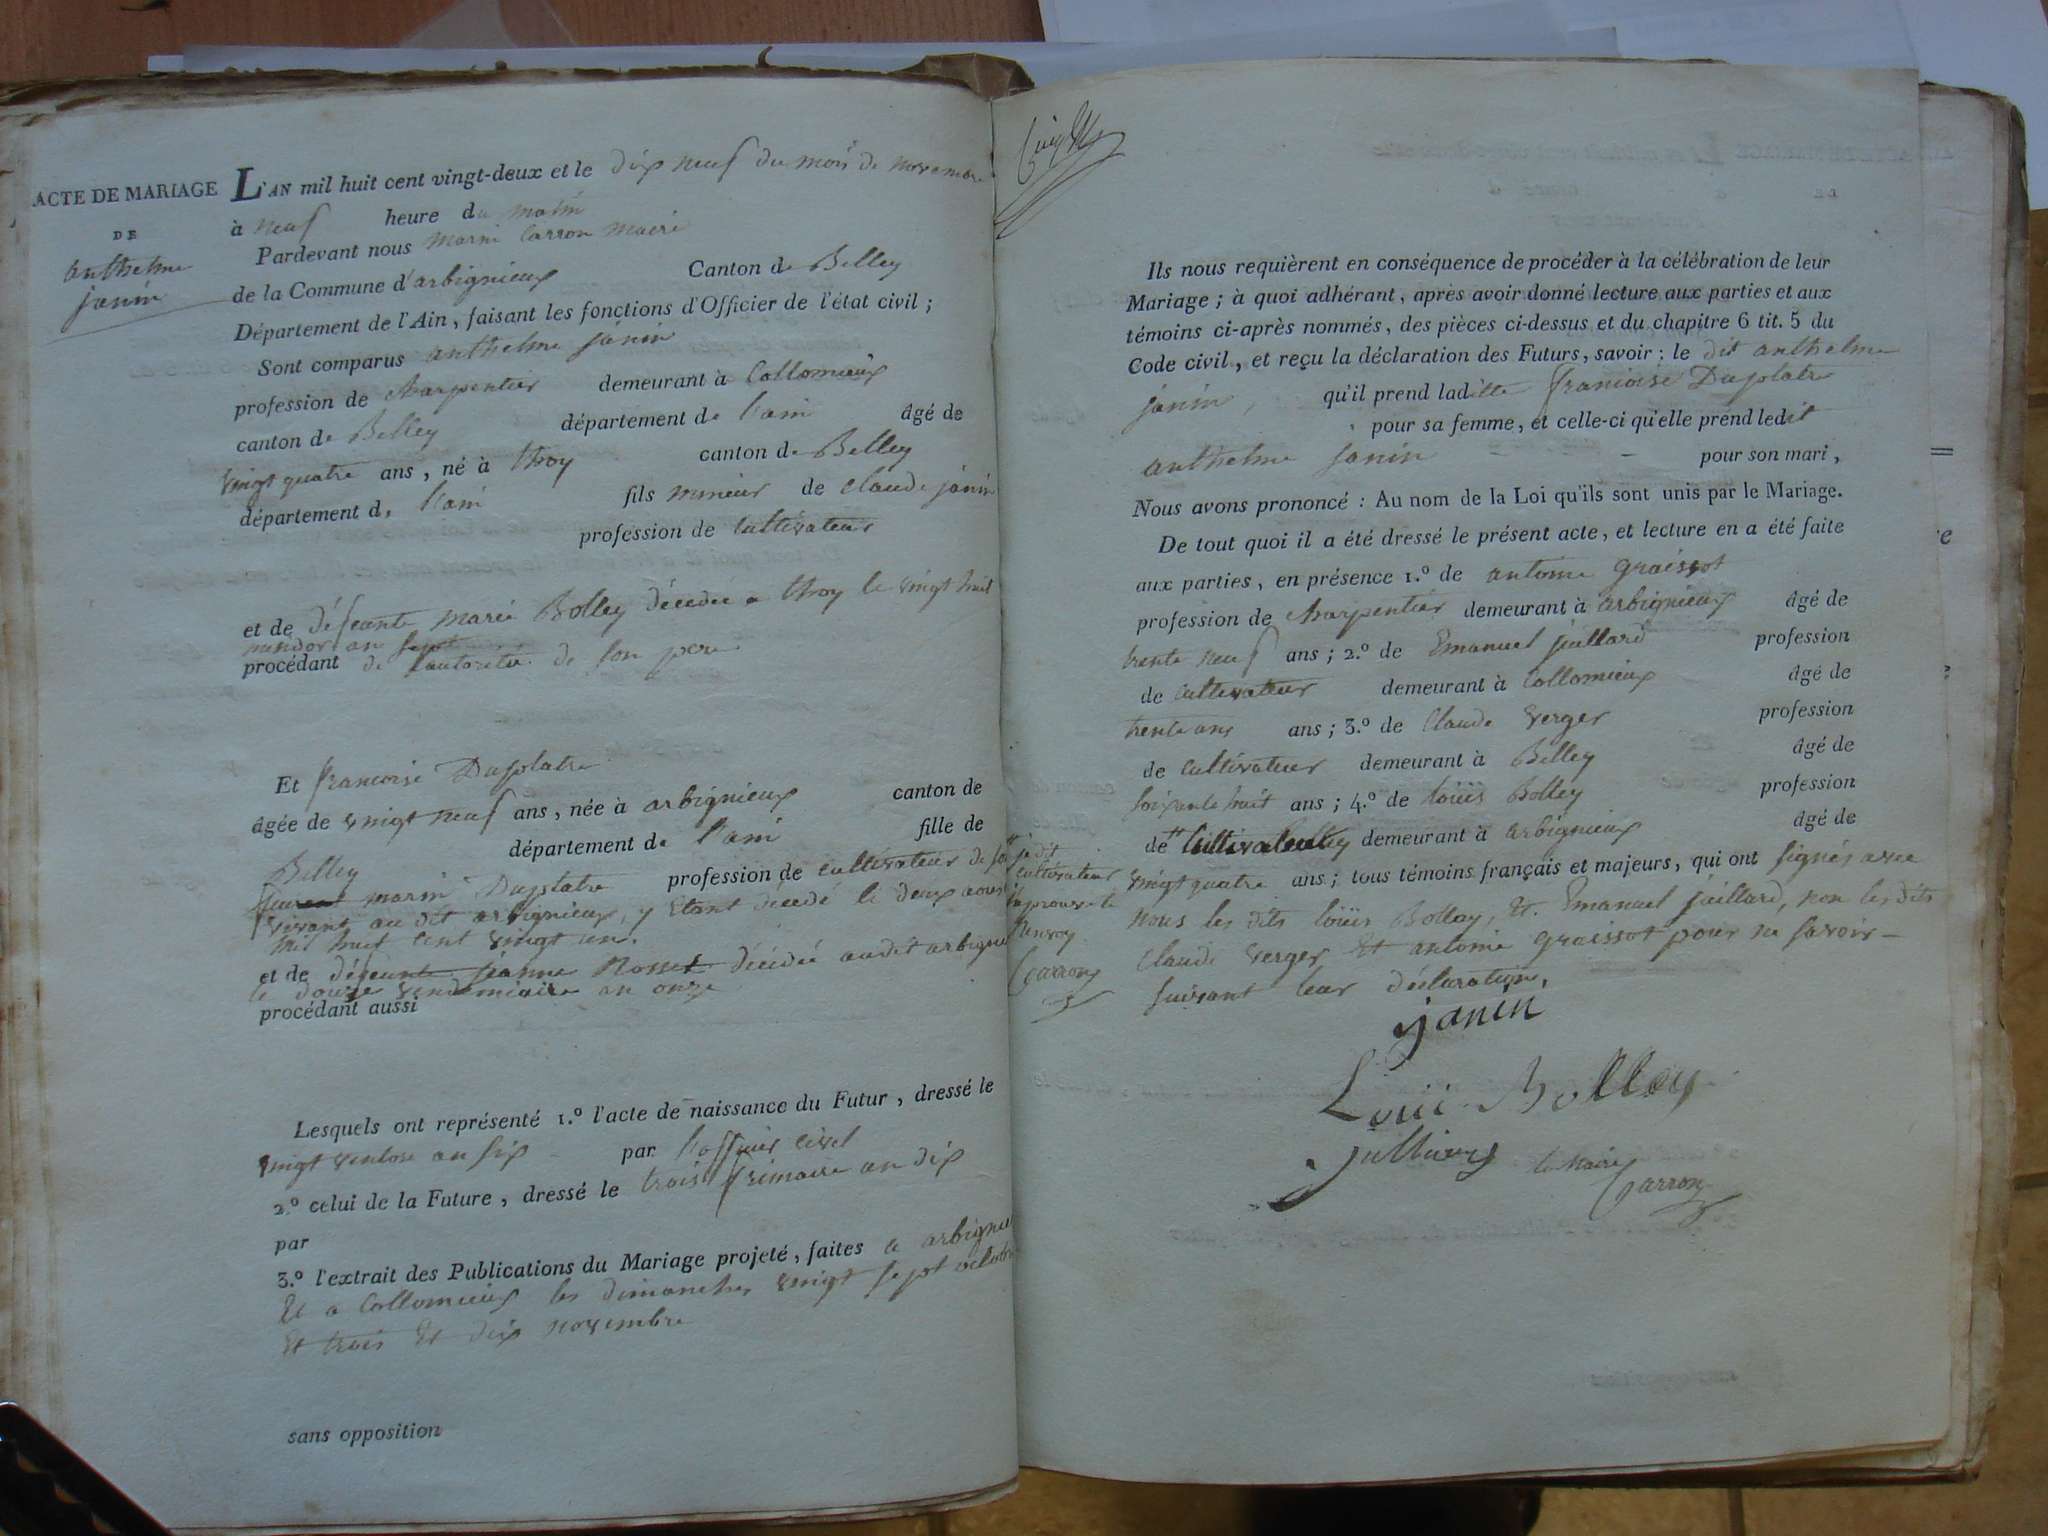 ACTE DE MARIAGE
DE
anthelme
janin
L'AN mil huit cent vingt-deux et le dix neuf du mois de novembre
à neuf heure du matin
Pardevant nous marin Carron maire
de la Commune d'arbignieux Canton de Belley
Département de l'Ain, faisant les fonctions d'Officier de l'état civil ;
Sont comparus anthelme janin
profession de charpentier demeurant à Collomieux
canton de Belley département de l'ain âgé de
vingt quatre ans, né à thoy canton de Belley
département d. l'ain fils mineur de claude janin
profession de cultivateur
et de défeunte marie Bolley décédée a thoy le vingt huit
an sept
procédant de l'autorité de son pere
Et francoise Duplatre
âgée de vingt neuf ans, née à arbignieux canton de
Belley département de l'ain fille de
marin Duplatre profession de cultivateur de son
vivant au dit arbignieux, y étant décédé le deux aoust
mil huit cent vingt un.
et de défeunte jeanne Rosset décédée audit arbignieux
le douze vendemiaire an onze
procédant aussi
Lesquels ont représenté 1.º l'acte de naissance du Futur, dressé le
vingt ventose an six par l'officier civil
2.º celui de la Future, dressé le trois frimaire an dix
par
3.º l'extrait des Publications du Mariage projeté, faites a arbignieux
Et a Collomieux les dimanches vingt sept octobre
Et trois Et dix novembre
sans opposition
cultivateur
aprouvé le
renvoy
Carron
Ils nous requièrent en conséquence de procéder à la célébration de leur
Mariage ; à quoi adhérant, après avoir donné lecture aux parties et aux
témoins ci-après nommés, des pièces ci-dessus et du chapitre 6 tit. 5 du
Code civil, et reçu la déclaration des Futurs, savoir : le dit anthelme
janin, qu'il prend laditte francoise Duplatre
pour sa femme, et celle-ci qu'elle prend ledit
anthelme janin pour son mari,
Nous avons prononcé : Au nom de la Loi qu'ils sont unis par le Mariage.
De tout quoi il a été dressé le présent acte, et lecture en a été faite
aux parties, en présence 1.º de antoine graissot
profession de charpentier demeurant à arbignieux âgé de
trente neuf ans ; 2.º de Emanuel juillard profession
de cultivateur demeurant à Collomieux âgé de
trente ans ans ; 3.º de Claude verger profession
de cultivateur demeurant à Belley âgé de
soixante huit ans ; 4.º de loüis Bolley profession
de demeurant à arbignieux âgé de
vingt quatre ans ; tous témoins français et majeurs, qui ont signés avec
nous les dits loüis Bollay, Et. Emanuel juillard, non les dits
Claude verger Et antoine graissot pour ne savoir
suivant leur déclaration,
janin
Louis Bolley
le maire
Carron